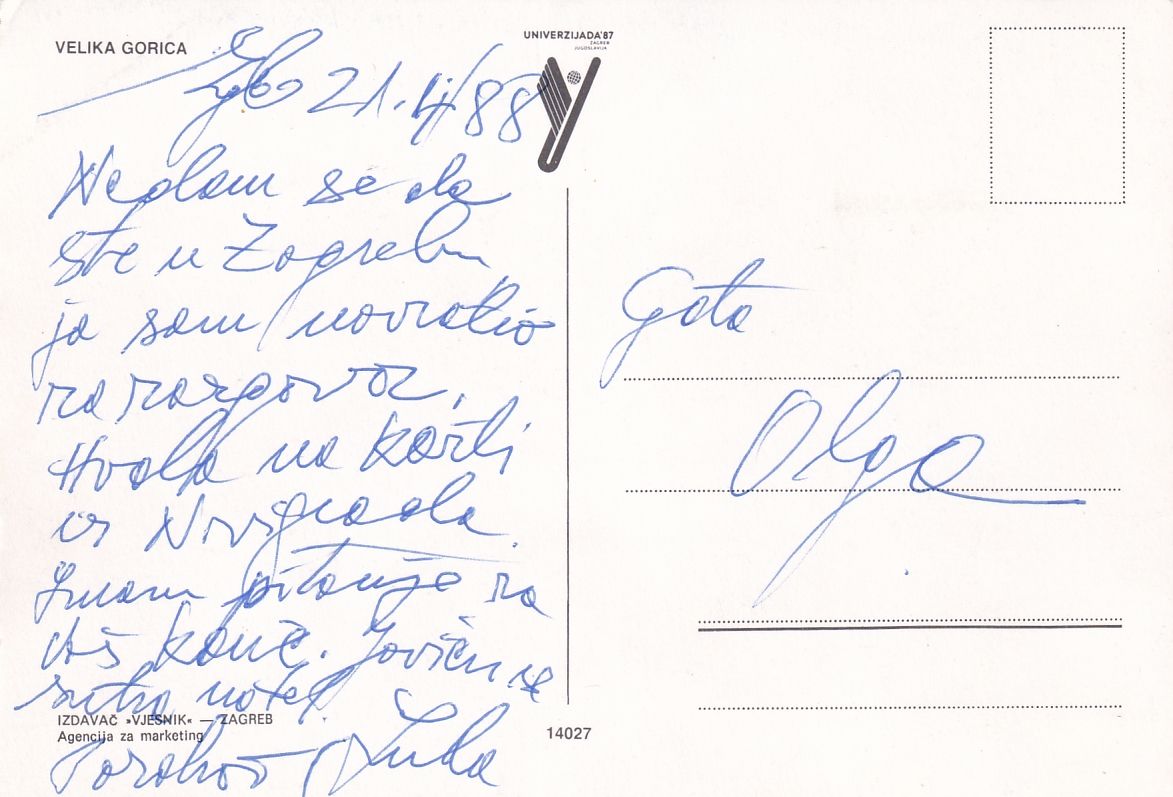 VELIKA GORICA
UNIVERZIJADA'87
ZAGREB
JUGOSLAVIJA
Zgb 21.4/88
Nadam se da
ste u Zagrebu
ja sam navratio
na razgovor,
Hvala na karti
iz Novigrada.
Imam pitanje za
Vaš Javiću se
Luka
IZDAVAČ »VJESNIK« — ZAGREB
Agencija za marketing
14027
Gđa
Olga